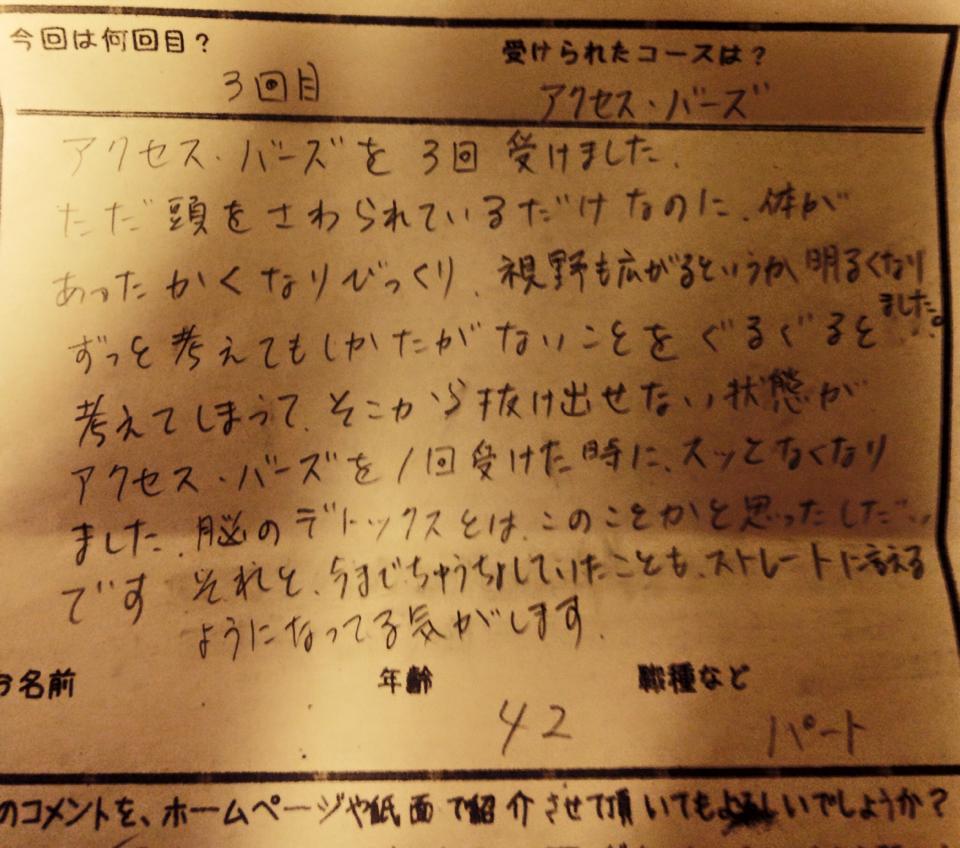 今回は何回目？
受けられたコースは？
3回目
アクセス・バーズ
アクセス・バーズを3回受けました。
ただ頭をさわられているだけなのに、体が
あったかくなりびっくり、視野も広がるというか、明るくなり
ました。
ずっと考えてもしかたがないことをぐるぐると
考えてしまうて、そこから抜け出せない状態が
アクセス・バーズを1回受けた時に、スッとなくなり
ました。脳のデトックスとは、このことかと思ったしだい
です それと、今までちゅうちょしていたことも、ストレートに言える
ようになってる気がします。
お名前
年齢
職種など
42
パート
のコメントを、ホームページや紙面で紹介させて頂いてもよろしいでしょうか？